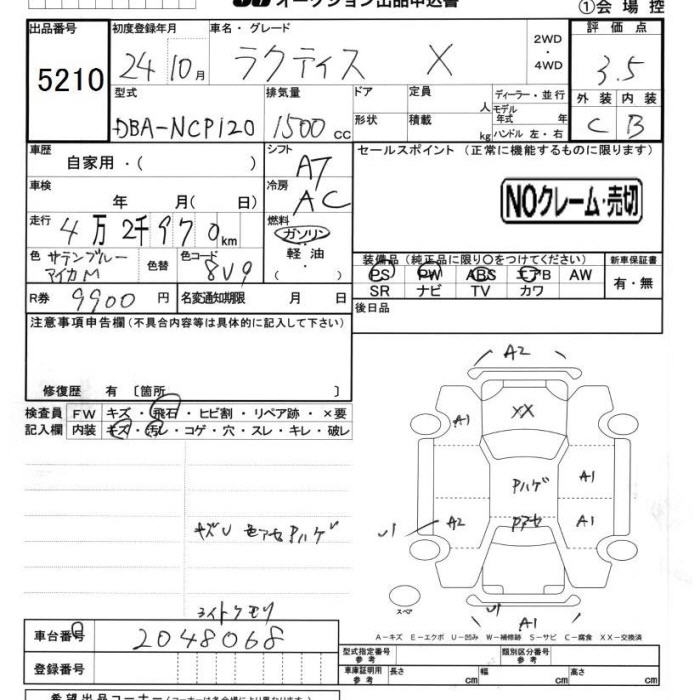 オークション出品申込書
①会場控
出品番号
5210
初度登録年月
24 10月
車名・グレード
ラクティス X
2WD
・
4WD
評価点
3.5
型式
DBA-NCP120
排気量
1500cc
ドア
形状
定員 人
積載 kg
ディーラー・並行
モデル
年式 年
ハンドル 左・右
外装 内装
C B
車歴
自家用・( )
シフト
AT
セールスポイント (正常に機能するものに限ります)
NOクレーム・売切
車検
年 月( 日)
冷房
AC
走行
4万2千970km
燃料
ガソリン
・
軽油
・
( )
色 サテンブルー
マイカM
色替
色コード
8V9
装備品(純正品に限り○をつけてください)
PS PW ABS エアB AW
SR ナビ TV カワ
新車保証書
有・無
R券 9900円
名変通知期限 月 日
後日品
注意事項申告欄(不具合内容等は具体的に記入して下さい)
修復歴 有 〔箇所 〕
検査員
記入欄
FW キズ・飛石・ヒビ割・リペア跡・×要
内装 キズ・汚レ・コゲ・穴・スレ・キレ・破レ
キズU 色アセ Pハゲ
ライトクモリ
A2
XX
A1
Pハゲ
A1
U1
A2
Pアセ
A1
U1
A1
スペア
A-キズ E-エクボ U-凹み W-補修跡 S-サビ C-腐食 XX-交換済
車台番号
2048068
登録番号
型式指定番号
参考
類別区分番号
参考
車庫証明用
参考
長さ cm 幅 cm 高さ cm
希望出品コーナー